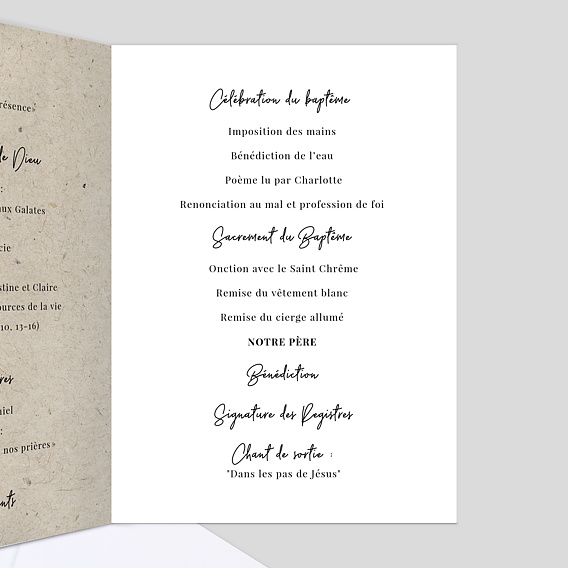 résence»
de Dieu
:
aux Galates
cie
stine et Claire
ources de la vie
10, 13-16)
res
niel
:
nos prières»
nts
Célébration du baptême
Imposition des mains
Bénédiction de l'eau
Poème lu par Charlotte
Renonciation au mal et profession de foi
Sacrement du Baptême
Onction avec le Saint Chrême
Remise du vêtement blanc
Remise du cierge allumé
NOTRE PÈRE
Bénédiction
Signature des Registres
Chant de sortie :
"Dans les pas de Jésus"